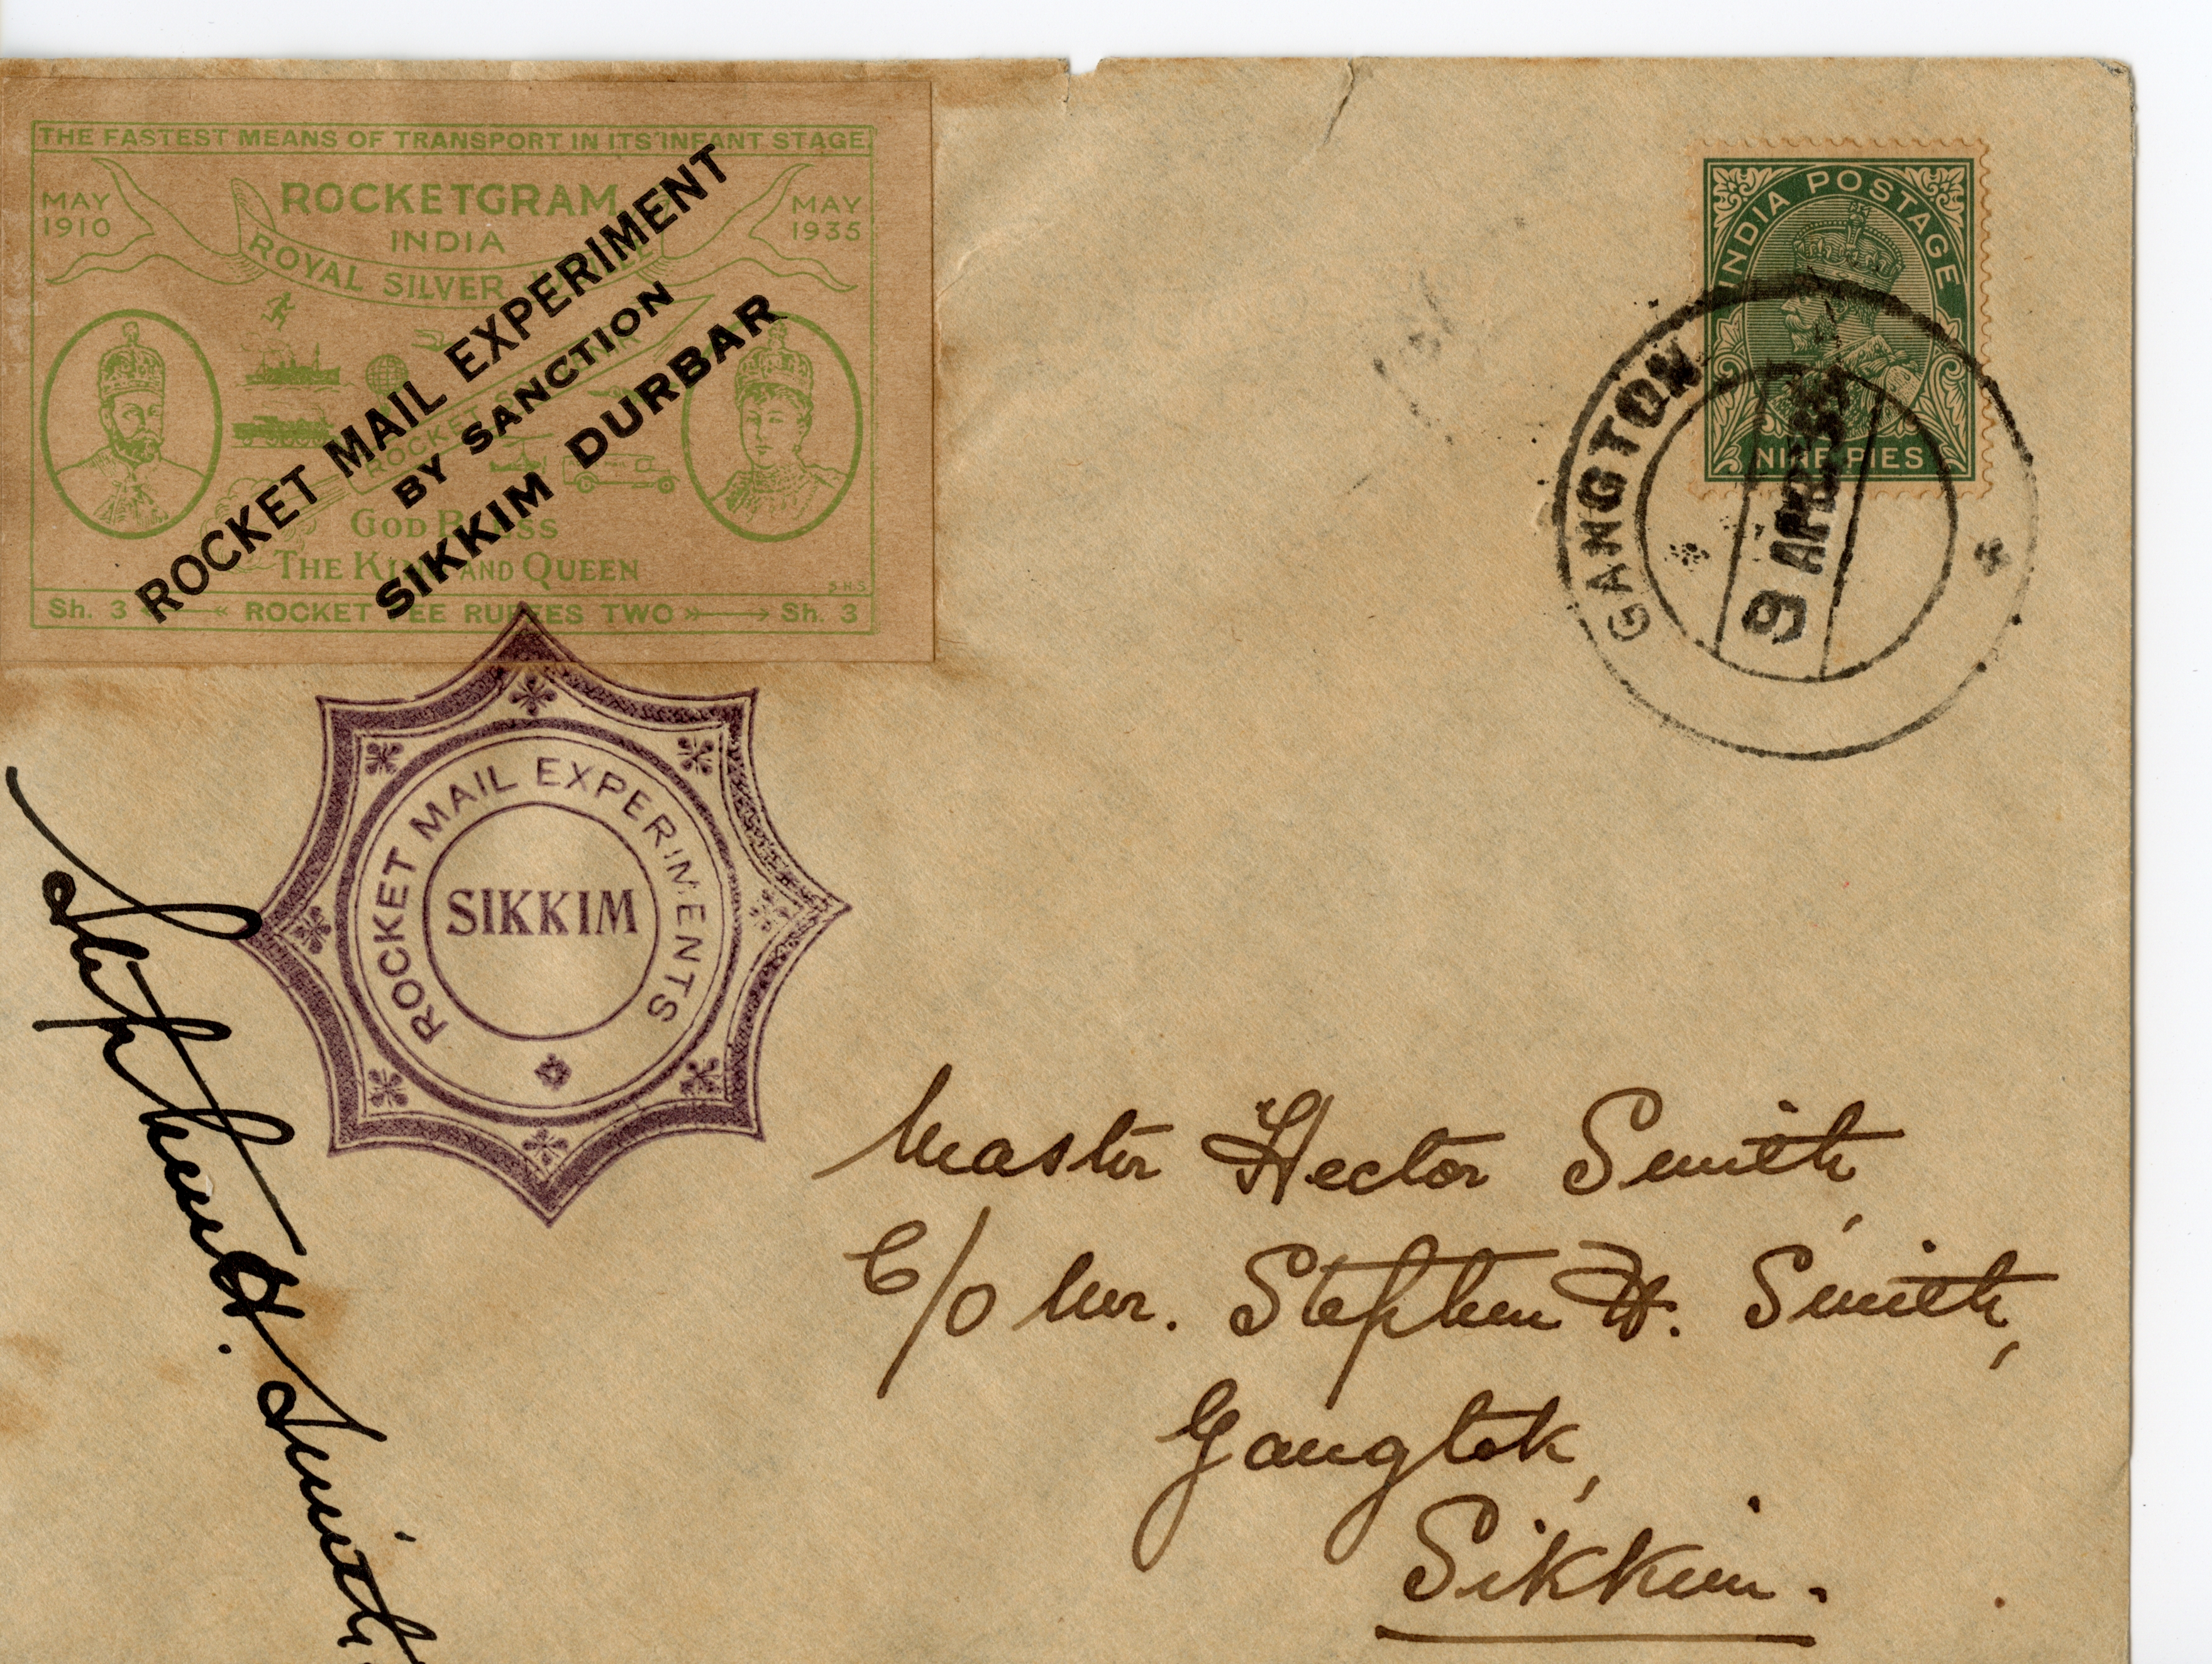 THE FASTEST MEANS OF TRANSPORT IN ITS INFANT STAGE.
MAY 1910
ROCKETGRAM
INDIA
MAY 1935
ROYAL SILVER
ROCKET MAIL EXPERIMENT
BY SANCTION
SIKKIM DURBAR
GOD BLESS
THE KING AND QUEEN
S.H.S
Sh. 3 ROCKET FEE RUPEES TWO Sh. 3
INDIA POSTAGE
NINE PIES
GANGTOK
9 APR.35
ROCKET MAIL EXPERIMENTS
SIKKIM
Stephen H. Smith
Master Hector Smith,
C/O Mr. Stephen H. Smith,
Gangtok,
Sikkim.